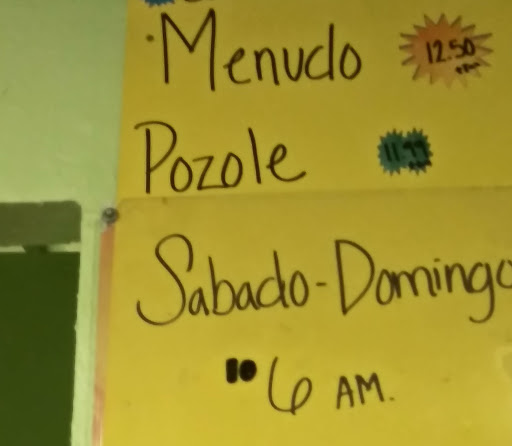 Menudo 12.50
Pozole 11.99
Sabado-Domingo
6 AM.